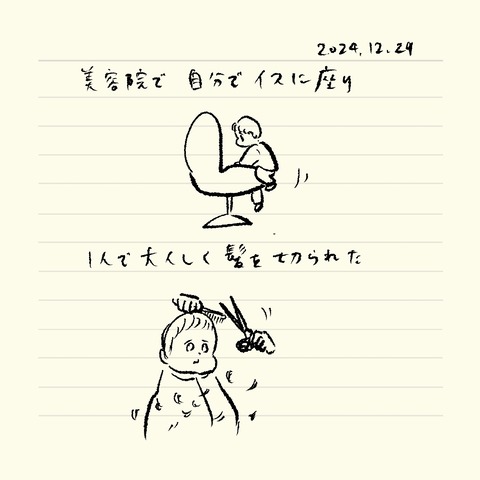 2024.12.29
美容院で 自分で イスに座り
1人で 大人しく 髪を 切られた